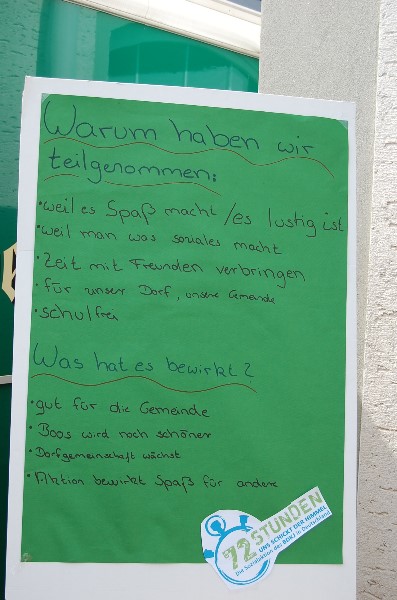 Warum haben wir
teilgenommen:
• weil es Spaß macht / es lustig ist
• weil man was soziales macht
• Zeit mit Freunden verbringen
• für unser Dorf, unsere Gemeinde
• schulfrei
Was hat es bewirkt?
• gut für die Gemeinde
• Boos wird noch schöner
• Dorfgemeinschaft wächst
• Aktion bewirkt Spaß für andere
72 STUNDEN
UNS SCHICKT DER HIMMEL
Die Sozialaktion des BDKJ in Deutschland